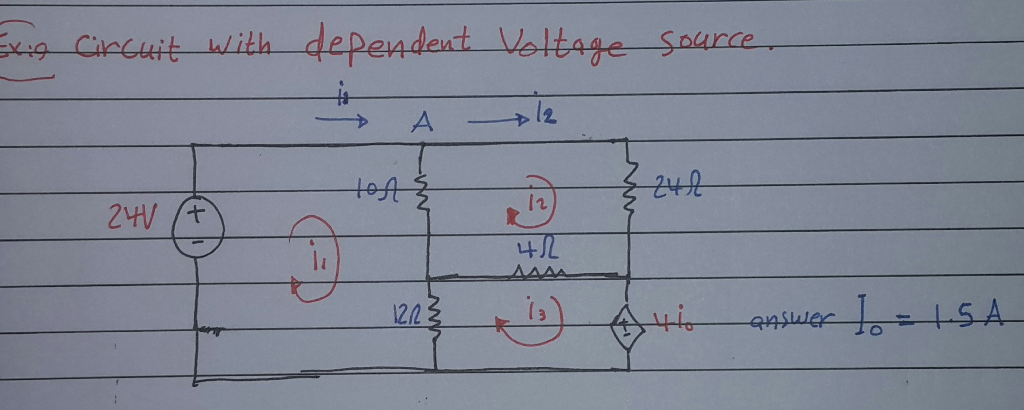 Ex:9 Circuit with dependent Voltage source.
i1 A i2
10Ω i2 24Ω
24V + -
i1 4Ω
12Ω i3 + - 4i₀ answer I₀ = 1.5 A